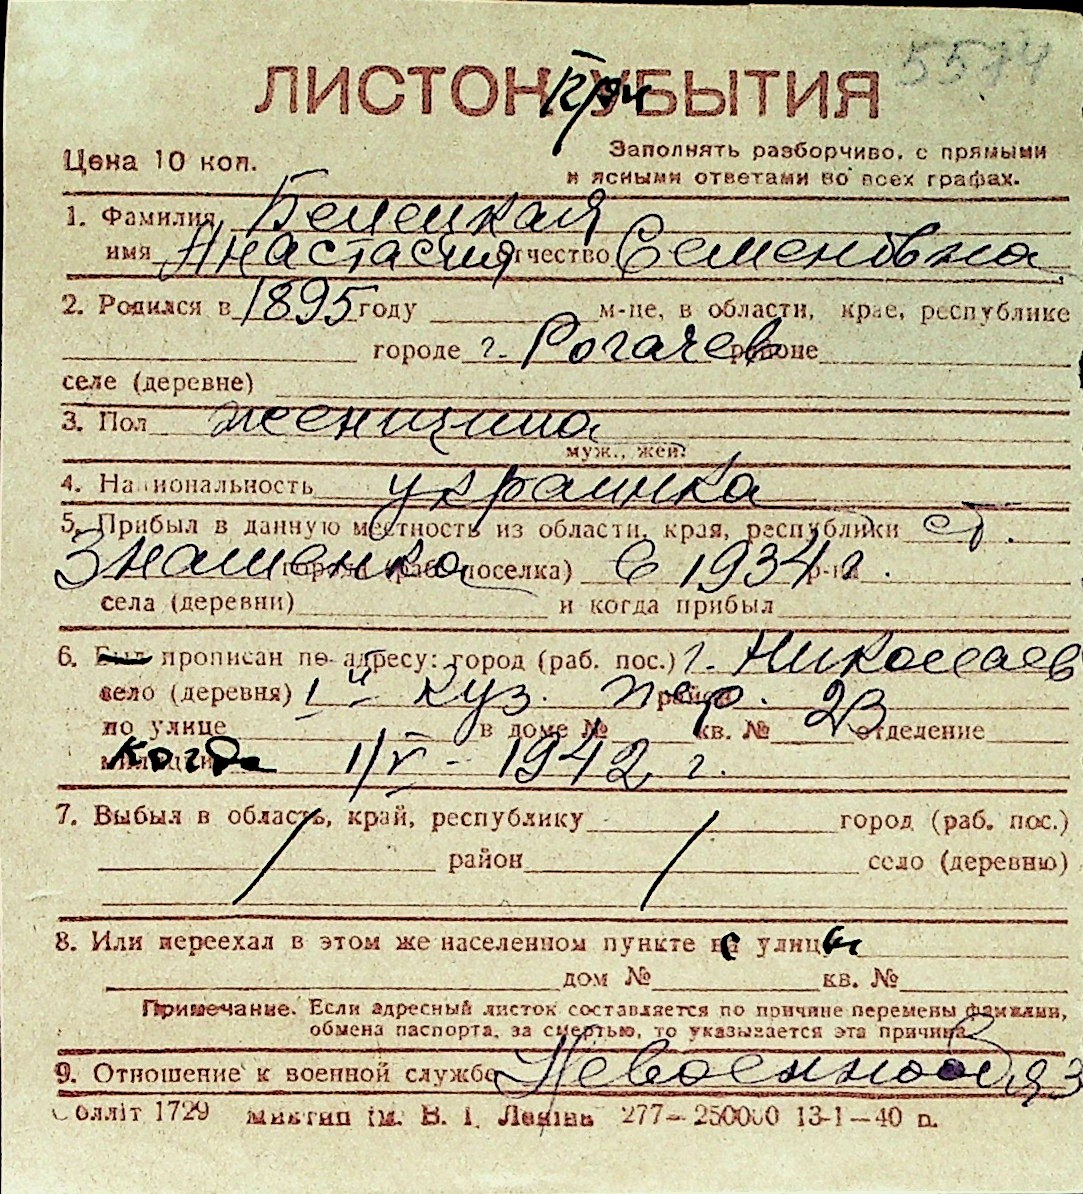 5574
ЛИСТОК УБЫТИЯ
При
Цена 10 коп.
Заполнять разборчиво, с прямыми
и ясными ответами во всех графах.
1. Фамилия Белецкая
имя Анастасия отчество Семеновна
2. Родился в 1895 году м-це, в области, крае, республике
городе г. Рогачев районе
селе (деревне)
3. Пол женщина
муж., жен.
4. Национальность украинка
5. Прибыл в данную местность из области, края, республики ст.
Знаменка города (раб. поселка) в 1934 г. р-на
села (деревни) и когда прибыл
6. Был прописан по адресу: город (раб. пос.) г. Николаев
село (деревня) 1й Куз. пер. район 23
по улице в доме № кв. № отделение
милиции когда 1/V - 1942 г.
7. Выбыл в область, край, республику город (раб. пос.)
район село (деревню)
8. Или переехал в этом же населенном пункте с улицы
дом № кв. №
Примечание. Если адресный листок составляется по причине перемены фамилии,
обмена паспорта, за смертью, то указывается эта причина
9. Отношение к военной службе Невоеннообяз
Обллiт 1729 Миктип iм. В. I. Ленiна 277—250000 13-1—40 п.